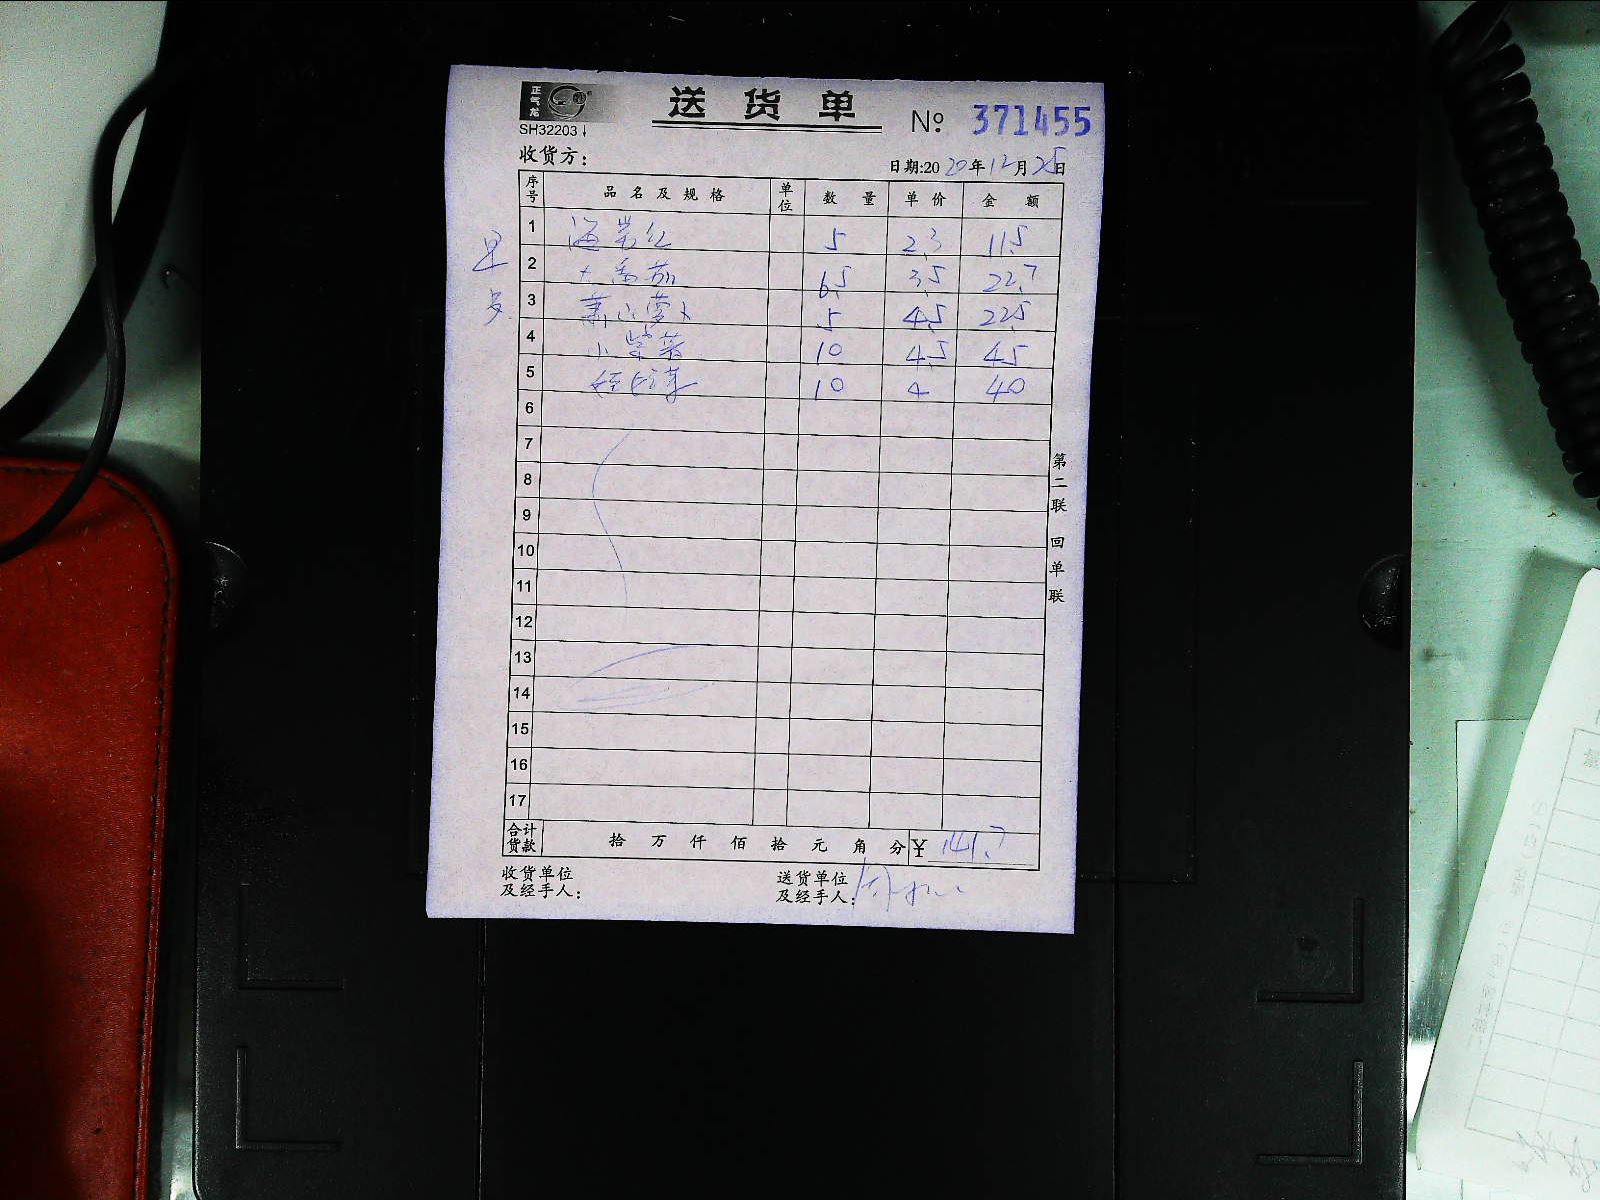 正气龙
送货单
SH32203
№ 371455
收货方：
日期:2020年12月25日
序号 品名及规格 单位 数量 单价 金额
1 海常红 5 2.3 11.5
2 大番茄 6.5 3.5 22.7
3 萧山萝卜 5 4.5 22.5
4 小紫薯 10 4.5 45
5 10 4 40
6
7
8
9
10
11
12
13
14
15
16
17
合计货款 拾 万 仟 佰 拾 元 角 分 ¥ 141.7
收货单位及经手人：
送货单位及经手人：
第二联 回单联